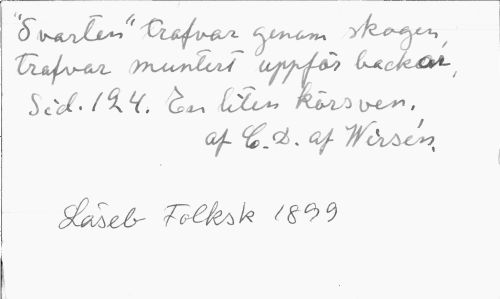 "Svarten" trafvar genom skogen,
trafvar muntert uppför backar,
Sid. 124. En liten körsven.
af C. D. af Wirsén.
Läseb Folksk 1899